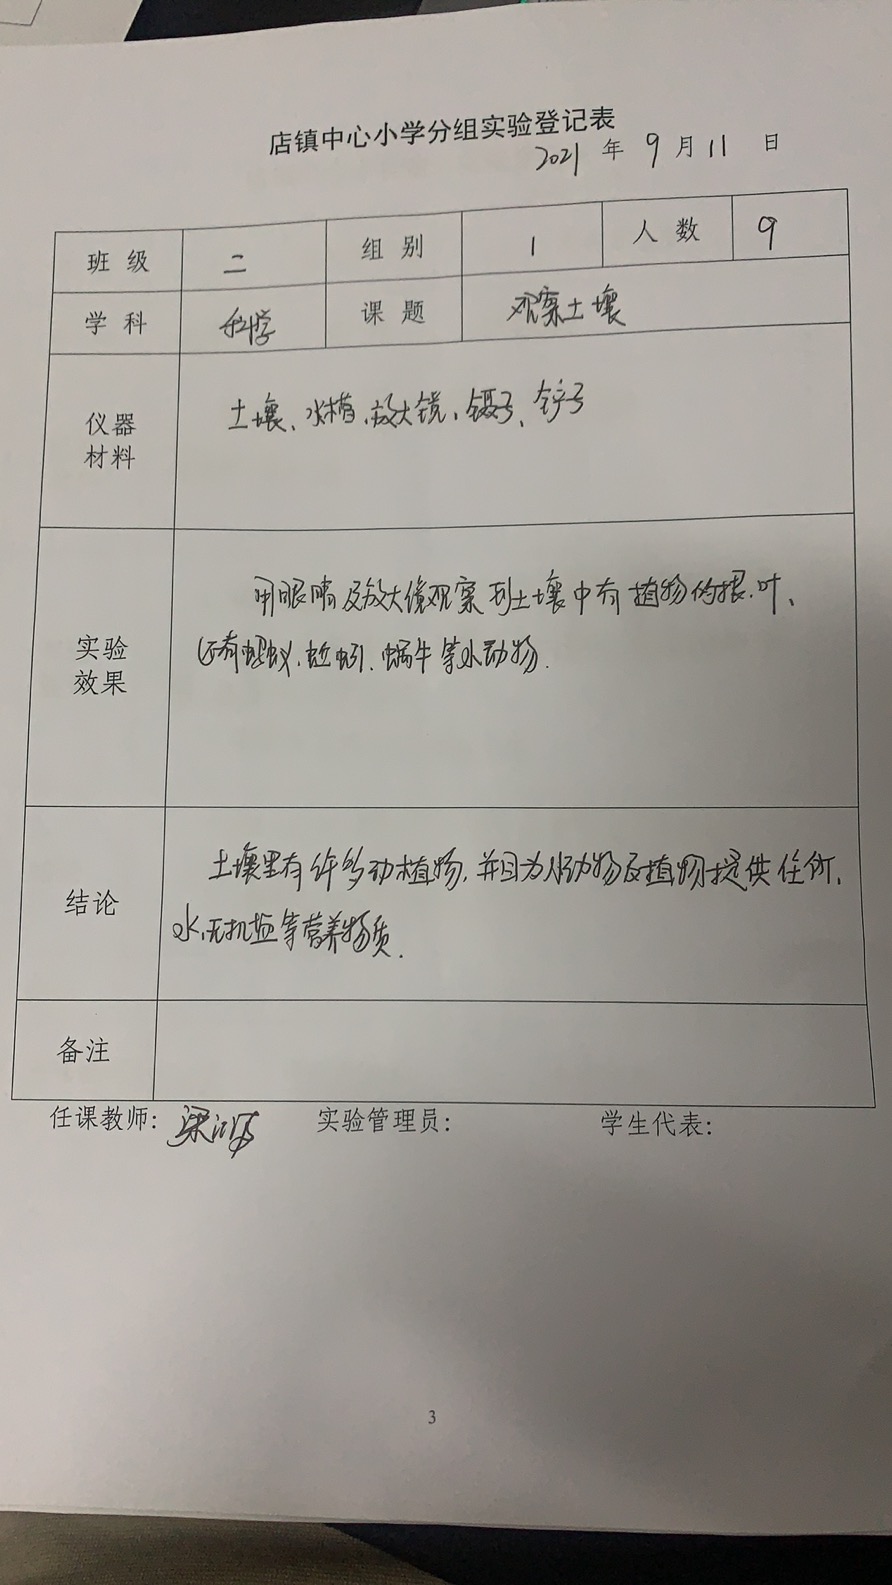 店镇中心小学分组实验登记表
2021 年 9 月 11 日
班 级 二 组 别 1 人 数 9
学 科 科学 课 题 观察土壤
仪器
材料
土壤、水槽、放大镜、镊子、铲子
实验
效果
用眼睛及放大镜观察到土壤中有植物的根、叶、
还有蚂蚁、蚯蚓、蜗牛等小动物.
结论
土壤里有许多动植物,并且为小动物及植物提供住所、
水、无机盐等营养物质.
备注
任课教师: 梁 实验管理员: 学生代表:
3